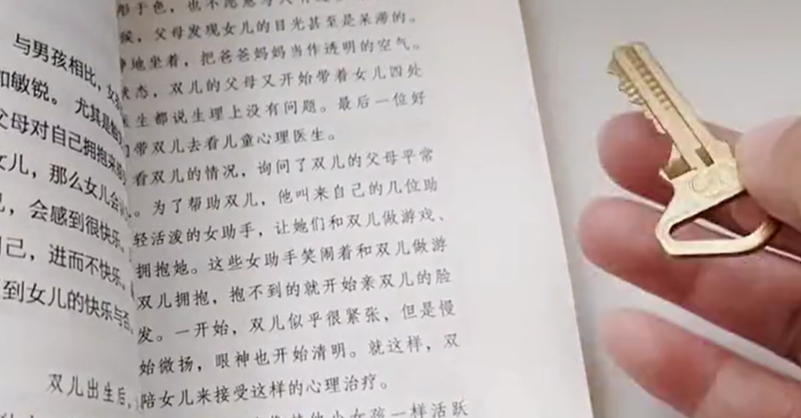 与男孩相比，女
如敏锐。尤其是
父母对自己拥抱来
女儿，那么女儿会
，会感到很快乐，
自己，进而不快乐。
到女儿的快乐与否
双儿出生后，
形于色，也不愿意与人
候，父母发现女儿的目光甚至是呆滞的。
静地坐着，把爸爸妈妈当作透明的空气。
状态，双儿的父母又开始带着女儿四处
医生都说生理上没有问题。最后一位好
带双儿去看儿童心理医生。
看双儿的情况，询问了双儿的父母平常
。为了帮助双儿，他叫来自己的几位助
轻活泼的女助手，让她们和双儿做游戏、
拥抱她。这些女助手笑闹着和双儿做游
双儿拥抱，抱不到的就开始亲双儿的脸
发。一开始，双儿似乎很紧张，但是慢
始微扬，眼神也开始清明。就这样，双
陪女儿来接受这样的心理治疗。
他小女孩一样活跃